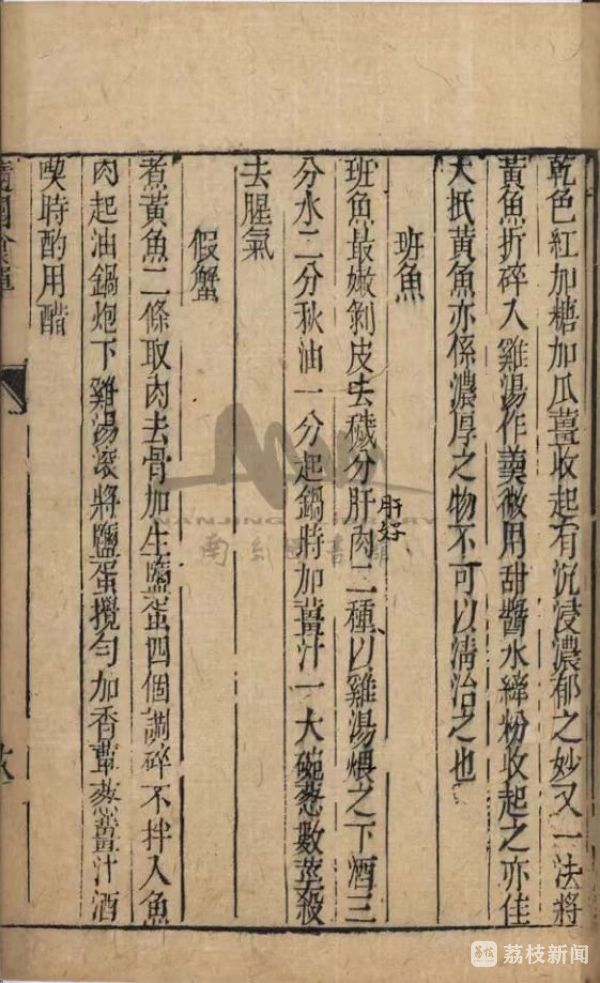 乾色紅加糖加瓜薑收起有沉浸濃郁之妙又一法將
黃魚折碎入雞湯作羹微用甜醬水縴粉收起之亦佳
大抵黃魚亦係濃厚之物不可以清治之也
班魚
班魚最嫩剝皮去穢分肝肉二種以雞湯煨之下酒三
肝好
分水二分秋油一分起鍋時加薑汁一大碗蔥數莖殺
去腥氣
假蟹
煮黃魚二條取肉去骨加生鹽蛋四個調碎不拌入魚
肉起油鍋炮下雞湯滾將鹽蛋攪勻加香蕈蔥薑汁酒
喫時酌用醋
隨園食單
荔枝新闻